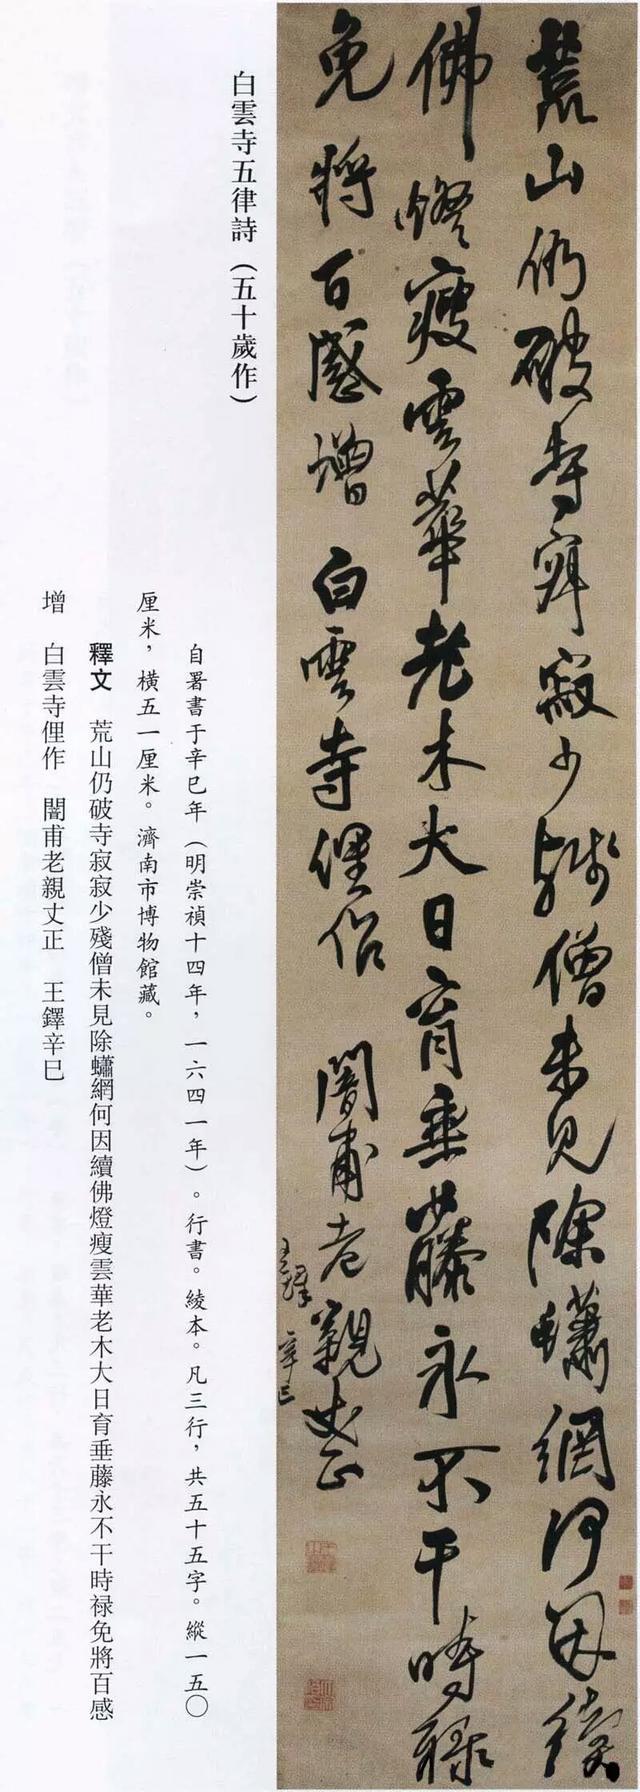 荒山仍破寺寂寂少殘僧未見除蟰網何因續
佛燈瘦雲華老木大日育垂藤永不干時祿
免將百感增 白雲寺俚作 闇甫老親丈正
王鐸辛巳
白雲寺五律詩（五十歲作）
自署書于辛巳年（明崇禎十四年，一六四一年）。行書。綾本。凡三行，共五十五字。縱一五〇
厘米，橫五一厘米。濟南市博物館藏。
釋文 荒山仍破寺寂寂少殘僧未見除蟰網何因續佛燈瘦雲華老木大日育垂藤永不干時禄免將百感
增 白雲寺俚作 闇甫老親丈正 王鐸辛巳